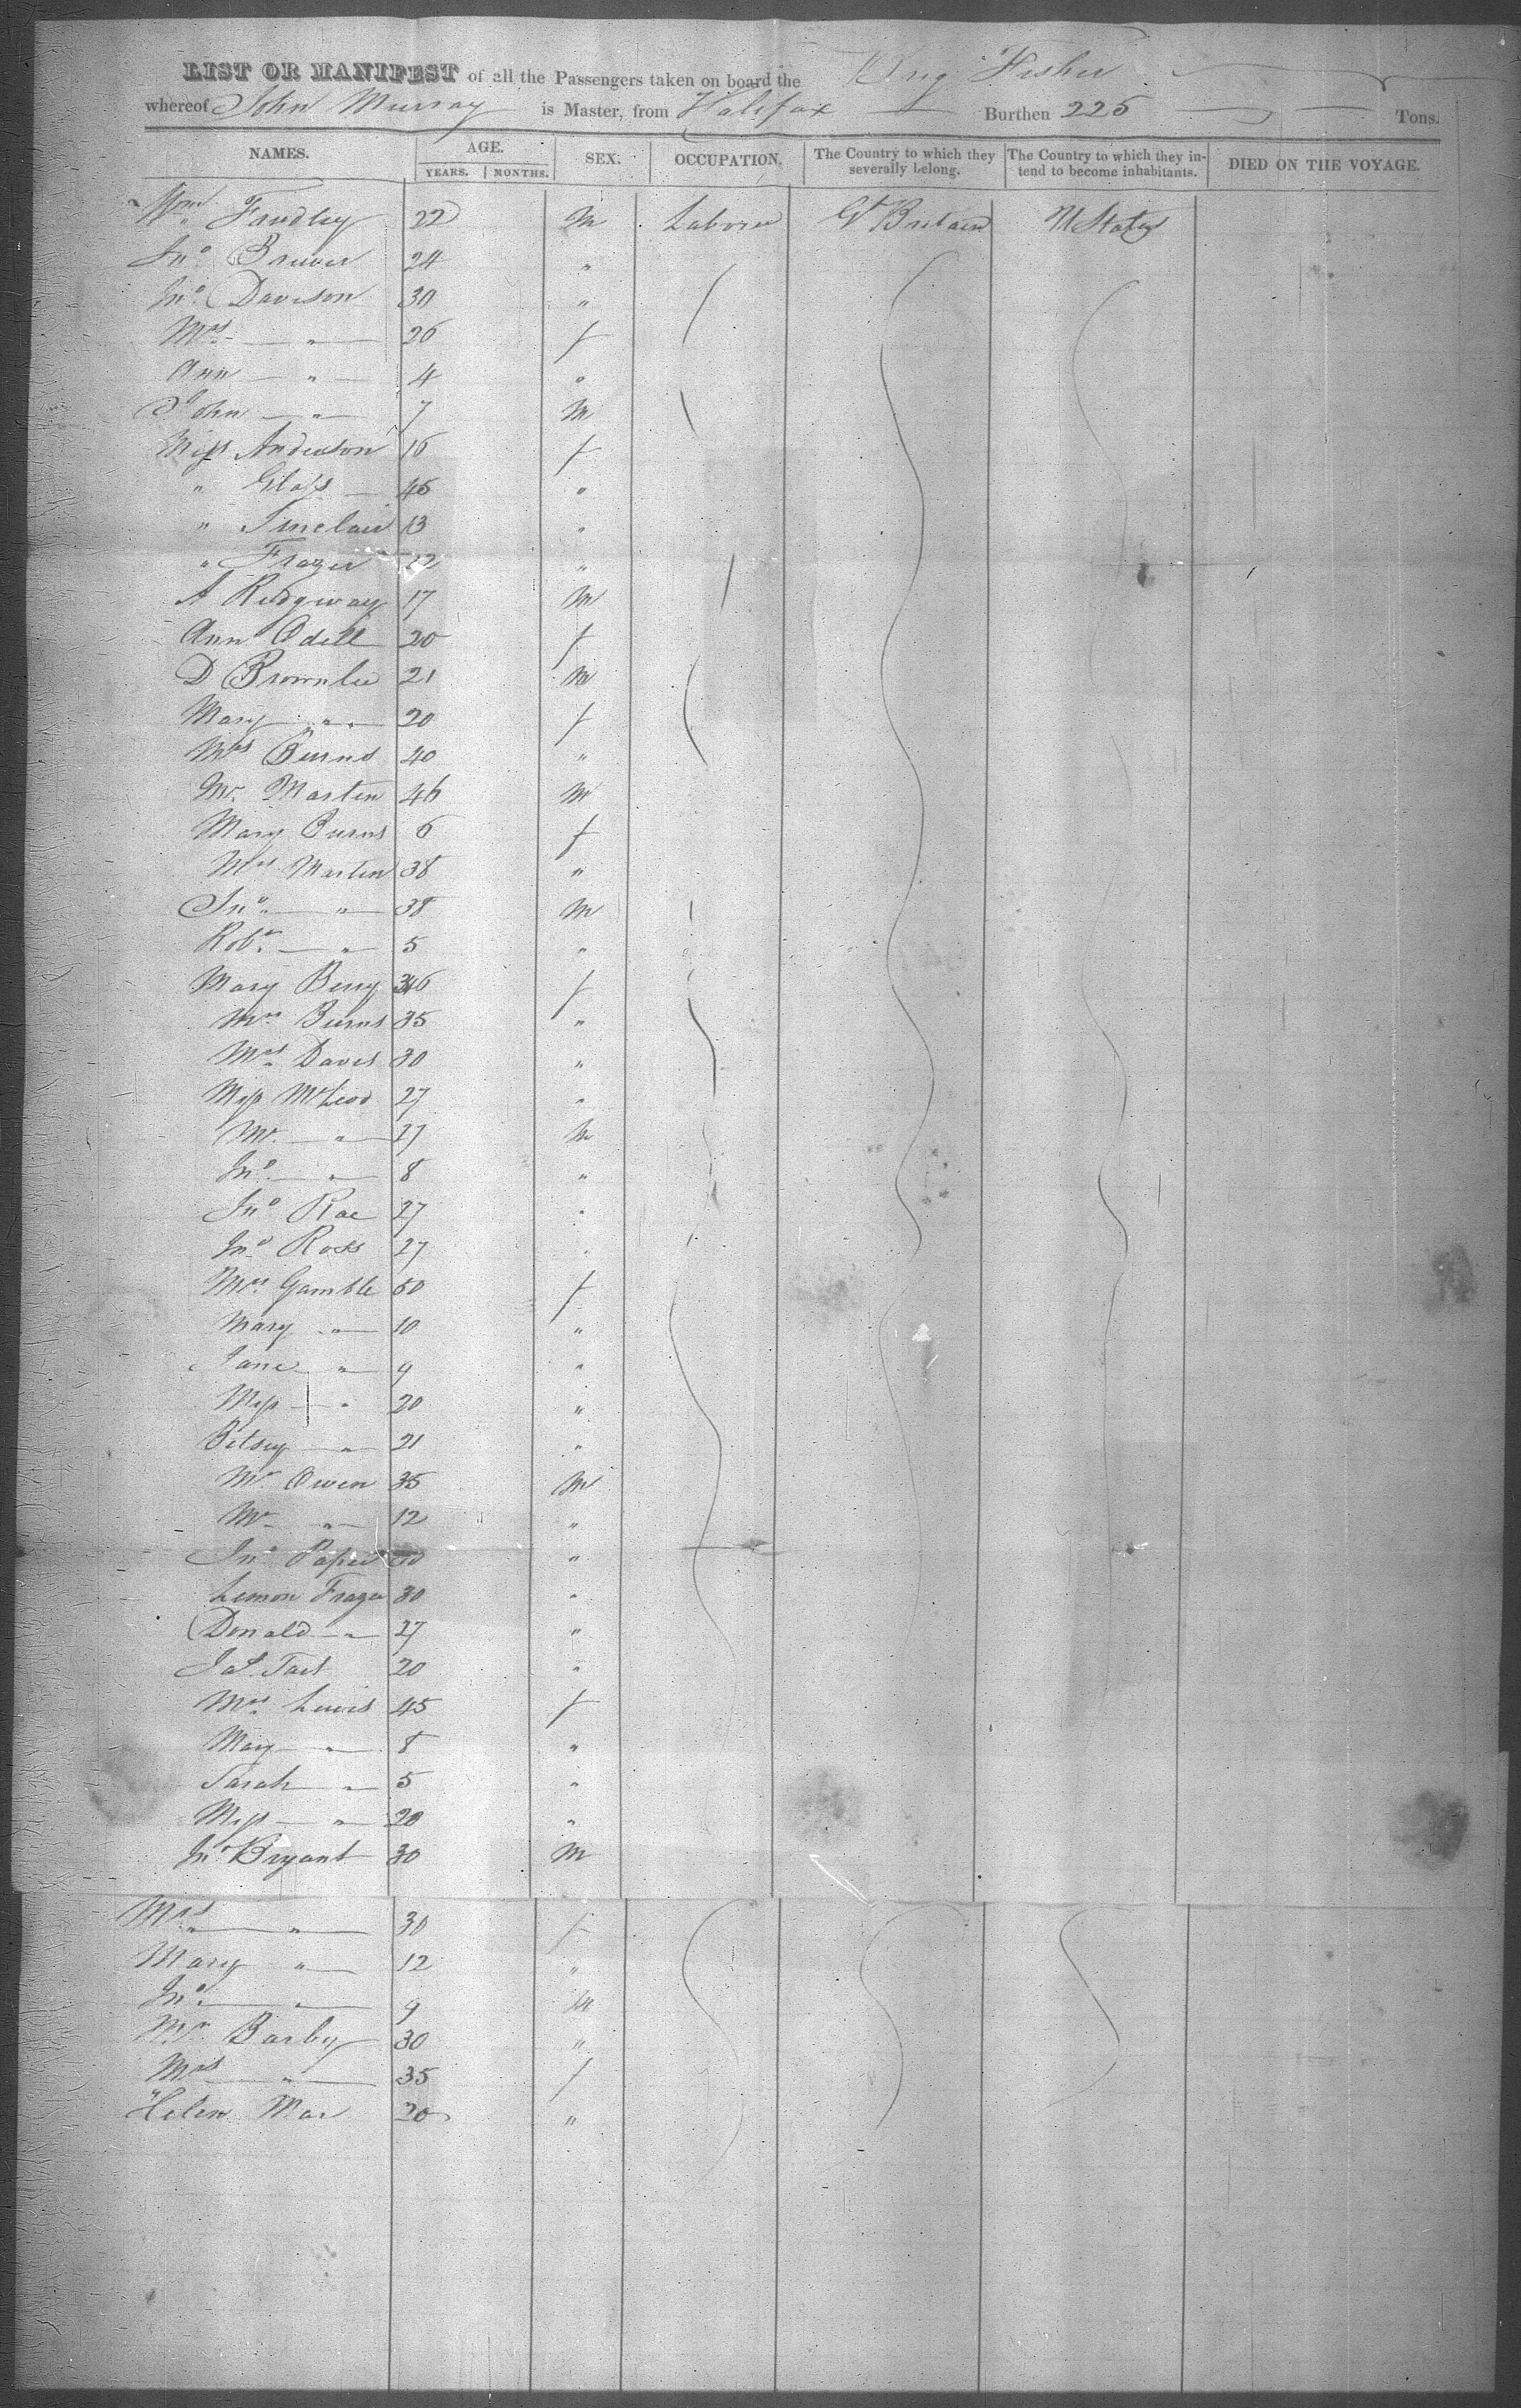 LIST OR MANIFEST of all the Passengers taken on board the Brig Fisher
whereof John Murray is Master, from Halifax Burthen 225 Tons.
NAMES. AGE. YEARS. MONTHS. SEX. OCCUPATION. The Country to which they severally belong. The Country to which they intend to become inhabitants. DIED ON THE VOYAGE.
Wm Findley 22 M Laborer Gt Britain U States
Jno Brewer 24 "
Jno Davison 30 "
Mrs " 26 f
Ann " 4 "
John " 7 M
Miss Anderson 16 f
" Glass 45 "
" Sinclair 13 "
" Frazer "
A Ridgway 17 M
Ann Odell 20 f
D Brownlee 21 M
Mary " " 20 f
Mrs Burns 40 "
Mr. Martin 46 M
Mary Burns 6 f
Mrs Martin 38 "
Jno " 38 M
Robt " 5 "
Mary Berry f
Mrs Burns 35 "
Mrs Davis 30 "
Miss McLeod 27 "
Mr " 27 M
Jno " 8 "
Jno Rae 27 "
Jno Ross 27 "
Mrs Gamble 50 f
Mary " 10 "
Jane " 9 "
Miss " 20 "
Betsey " 21 "
Mr Owen 35 M
Mr " 12 "
Jno "
Lemon Frazer 30 "
Donald " 27 "
Jas. Tait 20 "
Mrs Lewis 45 f
Mary " 8 "
Sarah " 5 "
Miss " 20 "
Jno Bryant 30 M
Mrs " 30 f
Mary " 12 "
Jno " 9 M
Mr Barby 30 "
Mrs " 35 f
Helen Mar 20 "